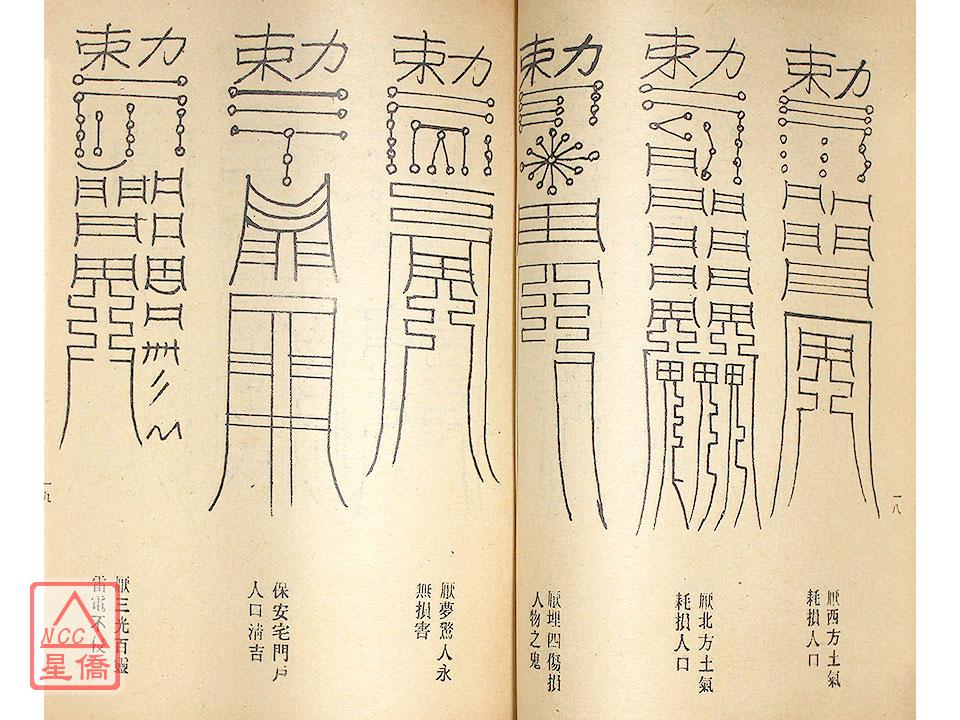 勅
厭西方土氣
耗損人口
勅
厭北方土氣
耗損人口
勅
厭埋四傷損
人物之鬼
一八
勅
厭夢驚人永
無損害
勅
保安宅門戶
人口淸吉
勅
厭三光百靈
雷電不侵
一九
NCC
星僑